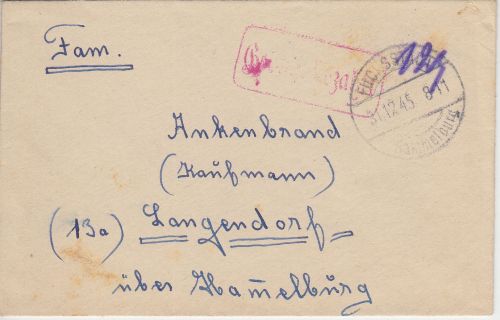 Fam.
12
31.12.45 8-11
Ankenbrand
(Kaufmann)
(13a) Langendorf
über Ham̅elburg